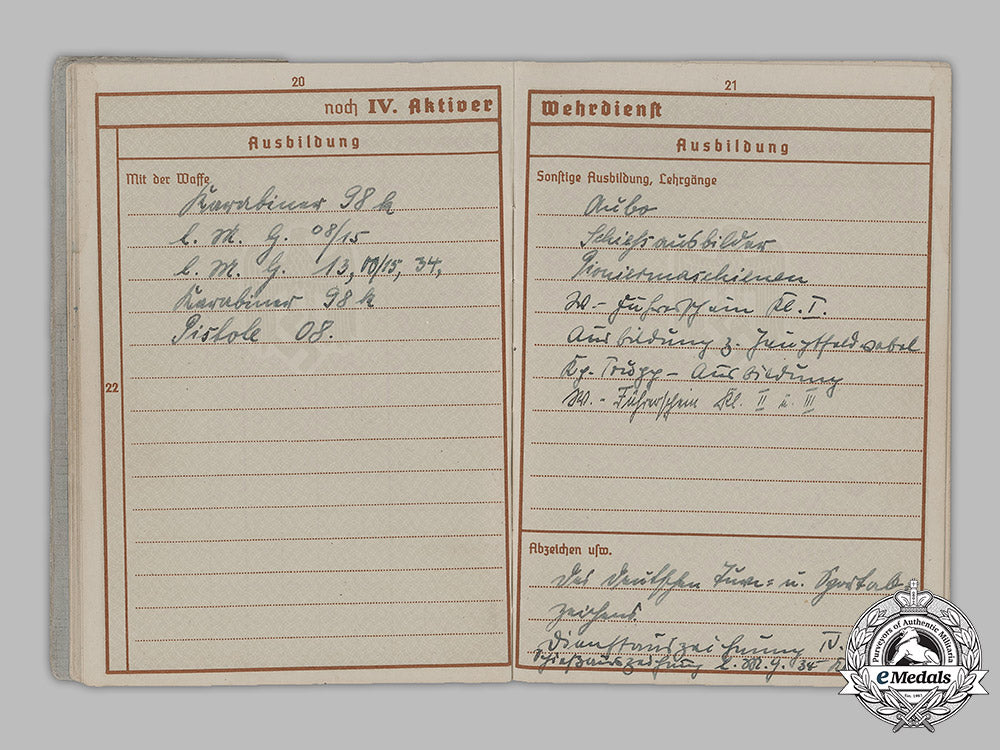 20
noch IV. Aktiver
Ausbildung
Mit der Waffe
Karabiner 98 k
l. M. G. 08/15
l. M. G. 13, 08/15, 34,
Karabiner 98 k
Pistole 08.
22
21
Wehrdienst
Ausbildung
Sonstige Ausbildung, Lehrgänge
Schießausbilder
Pioniermaschienen
W.- Führerschein Kl. I.
Ausbildung z. Hauptfeldwebel
Kp. Trupp - Ausbildung
W. - Führerschein Kl. II u. III
Abzeichen usw.
des deutschen Turn- u. Sportab-
zeichens.
Dienstauszeichnung IV.
Schießauszeichnung l. M. G.
Purveyors of Authentic Militaria
eMedals